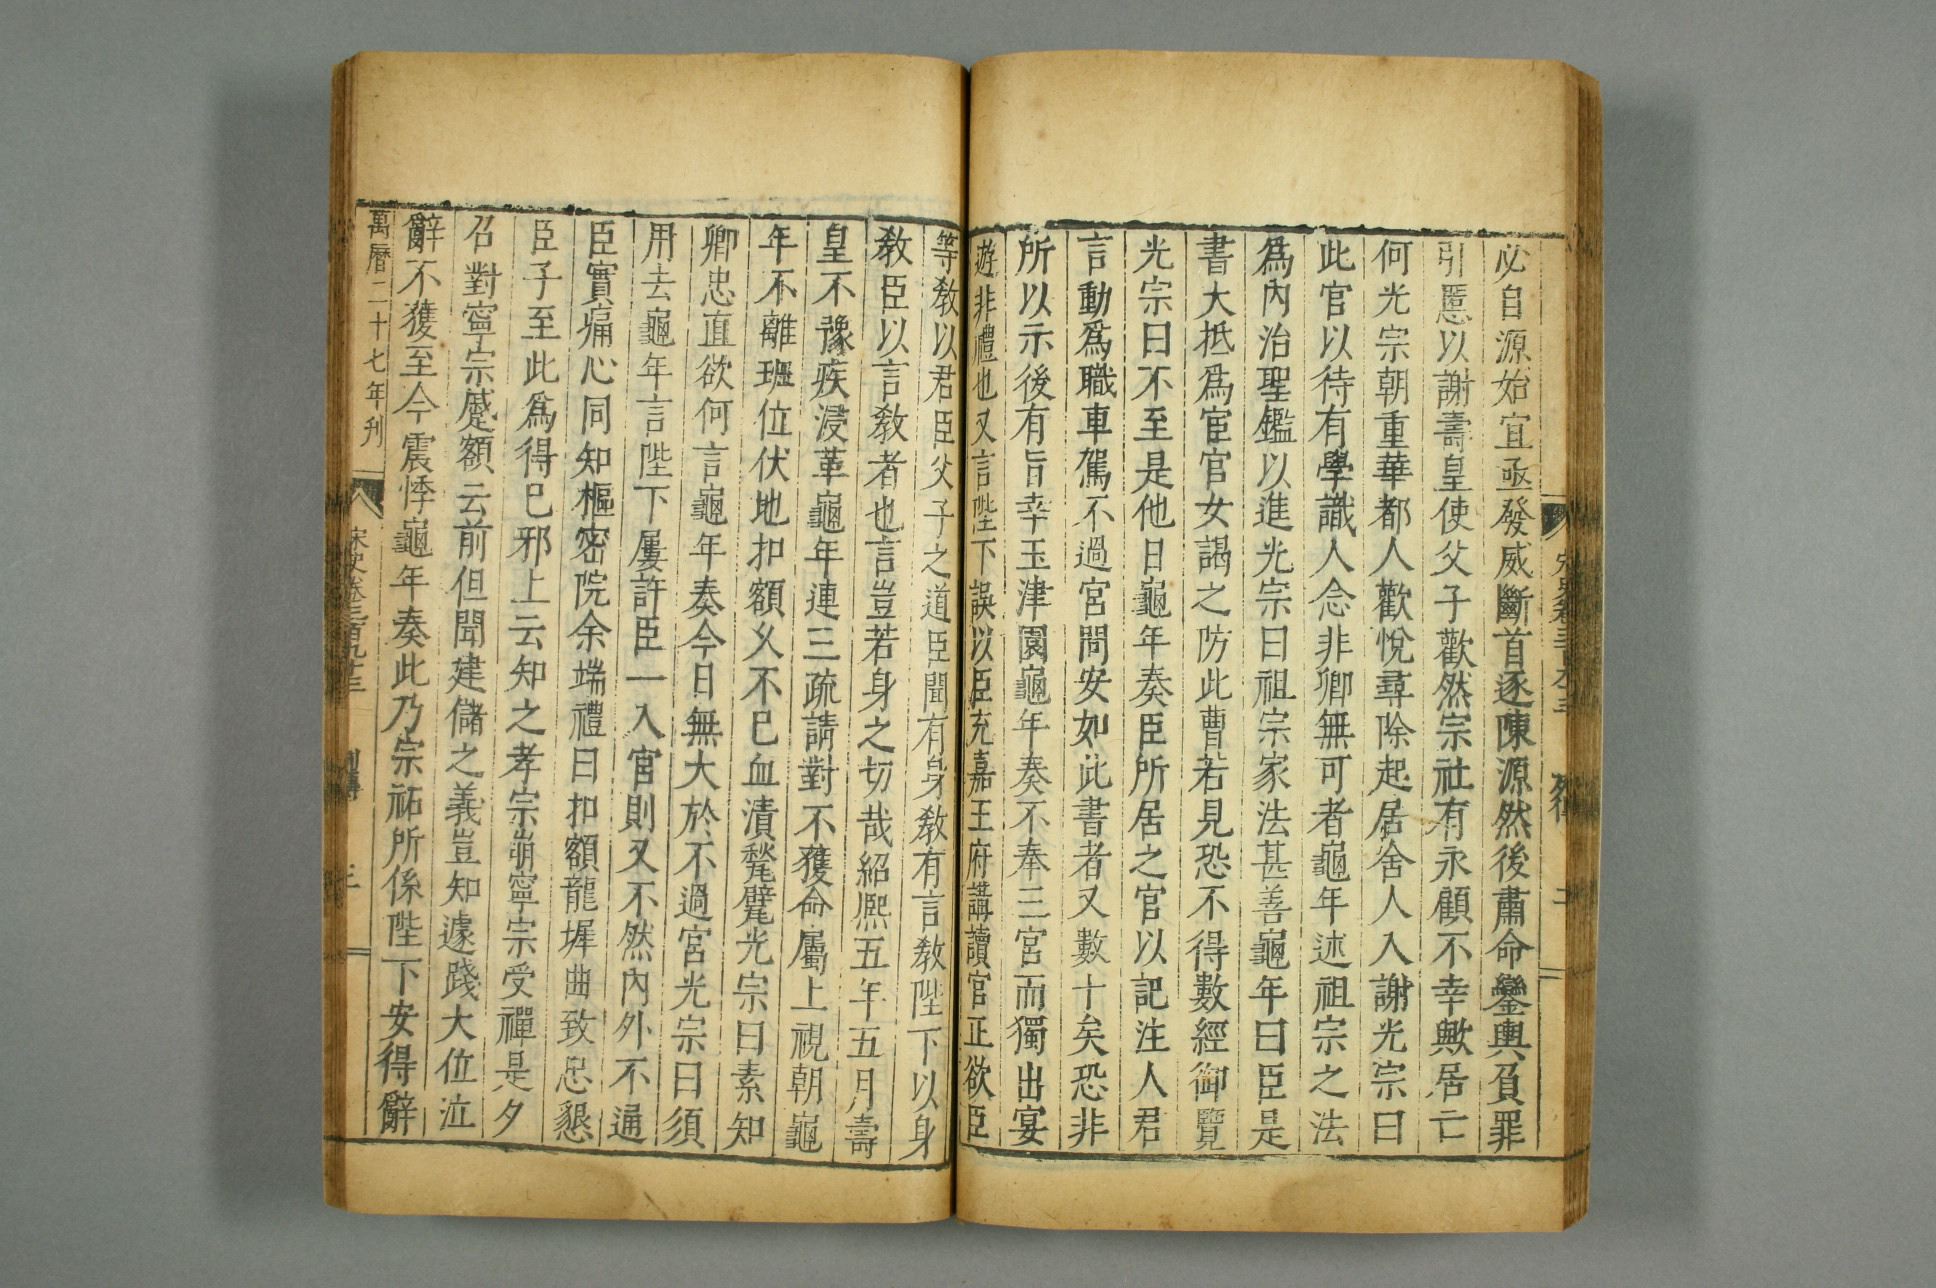 必自源始宜亟發威斷首逐陳源然後肅命鑾輿負罪
引慝以謝壽皇使父子歡然宗社有永顧不幸歟居亡
何光宗朝重華都人歡悅尋除起居舍人入謝光宗曰
此官以待有學識人念非卿無可者龜年述祖宗之法
爲內治聖鑑以進光宗曰祖宗家法甚善龜年曰臣是
書大抵爲宦官女謁之防此曹若見恐不得數經御覽
光宗曰不至是他日龜年奏臣所居之官以記注人君
言動爲職車駕不過宮問安如此書者又數十矣恐非
所以示後有旨幸玉津園龜年奏不奉三宮而獨出宴
遊非禮也又言陛下誤以臣充嘉王府講讀官正欲臣
等敎以君臣父子之道臣聞有身敎有言敎陛下以身
敎臣以言敎者也言豈若身之切哉紹熙五年五月壽
皇不豫疾浸革龜年連三疏請對不獲命屬上視朝龜
年不離班位伏地扣額久不已血漬甃甓光宗曰素知
卿忠直欲何言龜年奏今日無大於不過宮光宗曰須
用去龜年言陛下屢許臣一入宮則又不然內外不通
臣實痛心同知樞密院余端禮曰扣額龍墀曲致忠懇
臣子至此爲得已邪上云知之孝宗崩寧宗受禪是夕
召對寧宗蹙額云前但聞建儲之義豈知遽踐大位泣
辭不獲至今震悸龜年奏此乃宗祏所係陛下安得辭
萬曆二十七年刊
宋史卷三百九十三
列傳
三